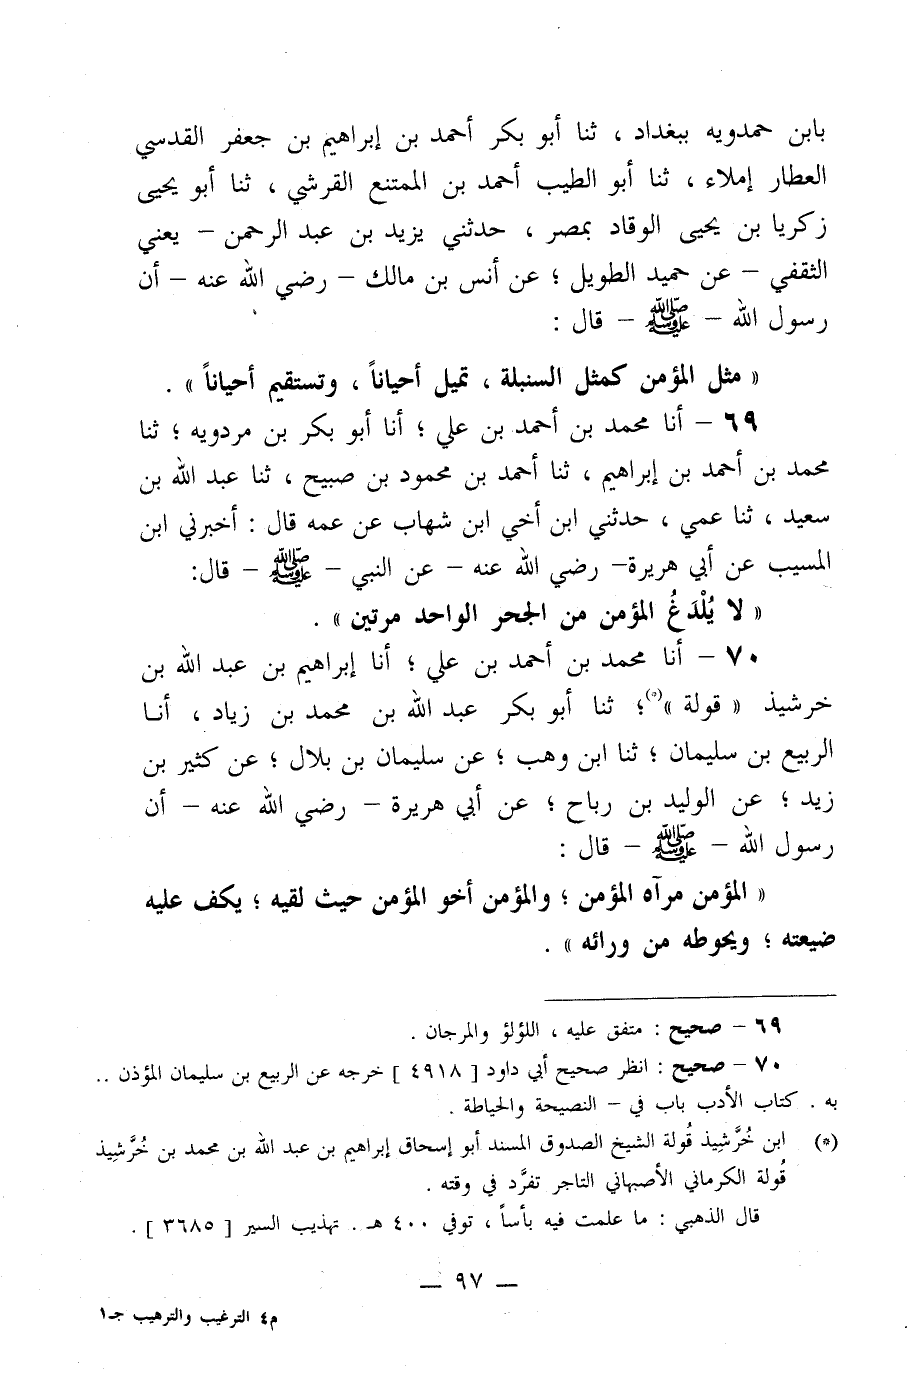 بابن حمدويه ببغداد ، ثنا أبو بكر أحمد بن إبراهيم بن جعفر القدسي
العطار إملاء ، ثنا أبو الطيب أحمد بن الممتنع القرشي ، ثنا أبو يحيى
زكريا بن يحيى الوقاد بمصر ، حدثني يزيد بن عبد الرحمن – يعني
الثقفي – عن حميد الطويل ؛ عن أنس بن مالك – رضي الله عنه – أن
رسول الله – ﷺ – قال :
« مثل المؤمن كمثل السنبلة ، تميل أحياناً ، وتستقيم أحياناً » .
٦٩ – أنا محمد بن أحمد بن علي ؛ أنا أبو بكر بن مردويه ؛ ثنا
محمد بن أحمد بن إبراهيم ، ثنا أحمد بن محمود بن صبيح ، ثنا عبد الله بن
سعيد ، ثنا عمي ، حدثني ابن أخي ابن شهاب عن عمه قال : أخبرني ابن
المسيب عن أبي هريرة– رضي الله عنه – عن النبي – ﷺ – قال:
« لا يُلْدَغُ المؤمن من الجحر الواحد مرتين » .
٧٠ – أنا محمد بن أحمد بن علي ؛ أنا إبراهيم بن عبد الله بن
خرشيذ « قولة »(*)؛ ثنا أبو بكر عبد الله بن محمد بن زياد ، أنا
الربيع بن سليمان ؛ ثنا ابن وهب ؛ عن سليمان بن بلال ؛ عن كثير بن
زيد ؛ عن الوليد بن رباح ؛ عن أبي هريرة – رضي الله عنه – أن
رسول الله – ﷺ – قال :
« المؤمن مرآه المؤمن ؛ والمؤمن أخو المؤمن حيث لقيه ؛ يكف عليه
ضيعته ؛ ويحوطه من ورائه » .
٦٩ – صحيح : متفق عليه ، اللؤلؤ والمرجان .
٧٠ – صحيح : انظر صحيح أبي داود [ ٤٩١٨ ] خرجه عن الربيع بن سليمان المؤذن ..
به . كتاب الأدب باب في – النصيحة والحياطة .
(*) ابن خُرَّشِيذ قُولة الشيخ الصدوق المسند أبو إسحاق إبراهيم بن عبد الله بن محمد بن خُرَّشِيذ
قُولة الكرماني الأصبهاني التاجر تفرَّد في وقته .
قال الذهبي : ما علمت فيه بأساً ، توفي ٤٠٠ هـ . تهذيب السير [ ٣٦٨٥ ] .
— ٩٧ —
م٤ الترغيب والترهيب جـ١